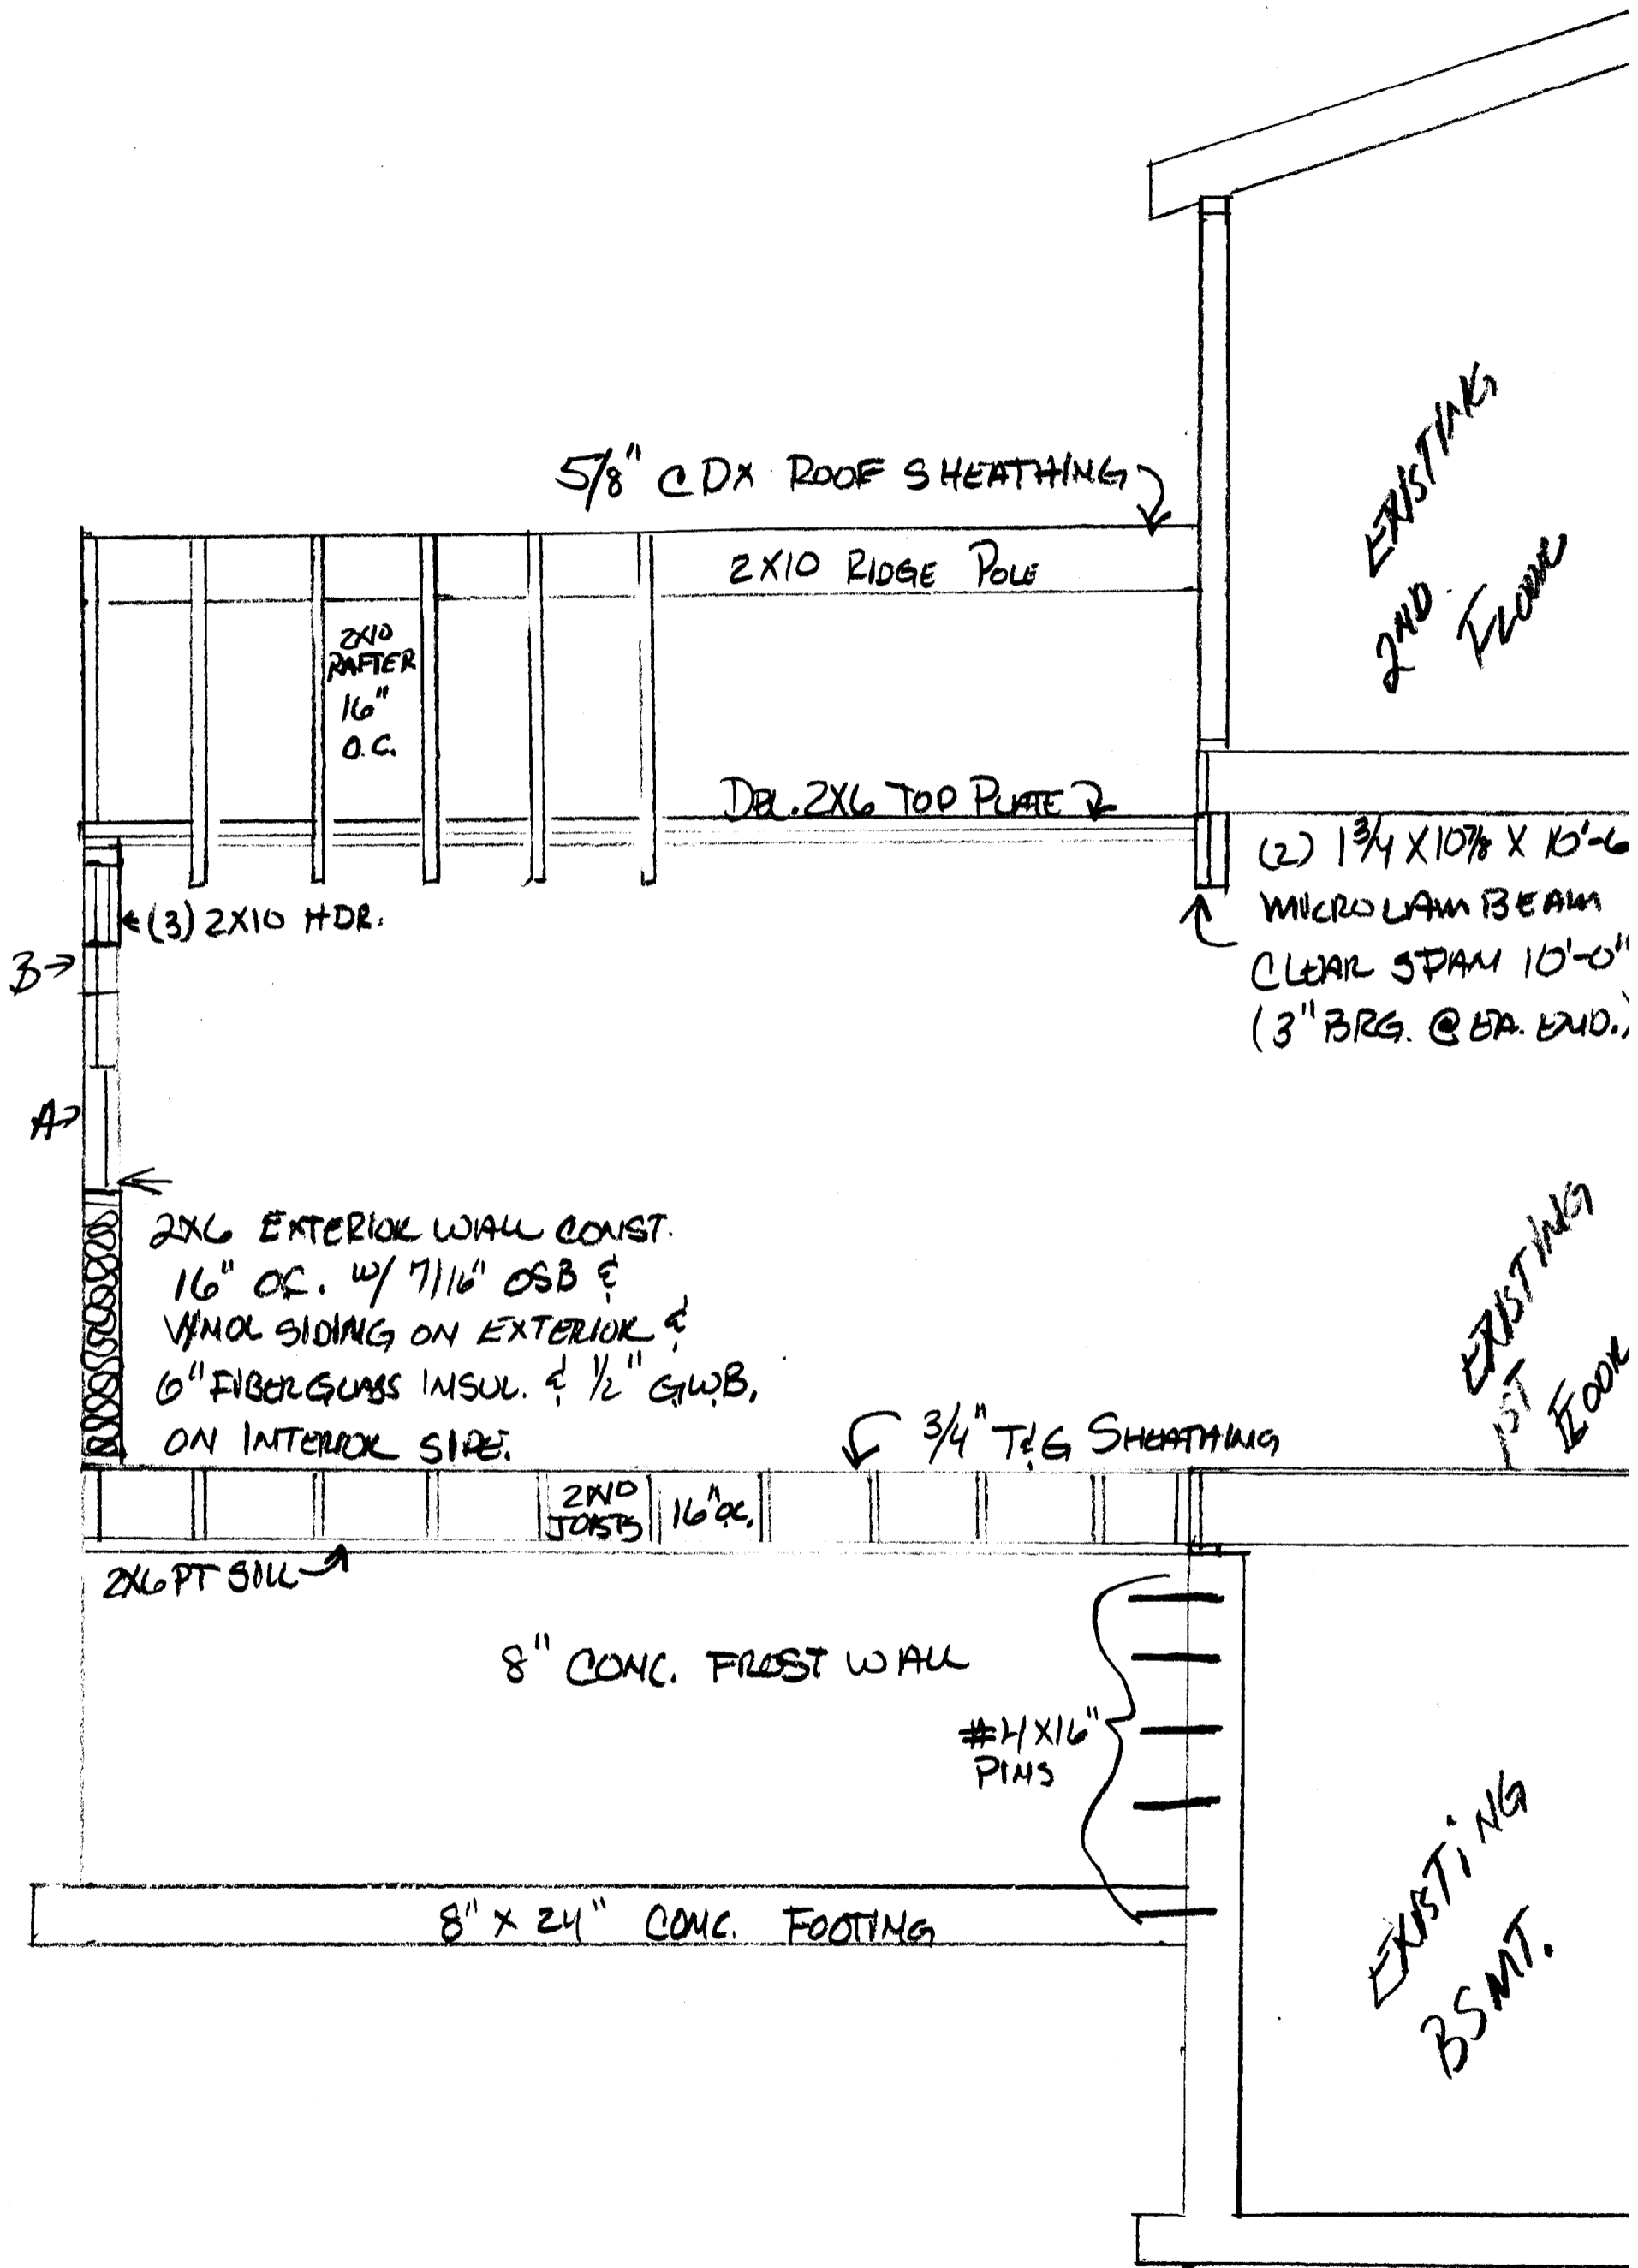 5/8" CDX ROOF SHEATHING
2X10 RIDGE POLE
2X10
RAFTER
16"
O.C.
EXISTING
2ND
FLOOR
DBL. 2X6 TOP PLATE
(2) 1 3/4 X 10 7/8 X 10'-6
MICROLAM BEAM
CLEAR SPAN 10'-0"
(3" BRG. @ EA. END.)
(3) 2X10 HDR.
B
A
2X6 EXTERIOR WALL CONST.
16" OC. W/ 7/16" OSB &
VINOL SIDING ON EXTERIOR &
6" FIBERGLASS INSUL. & 1/2" G.W.B.
ON INTERIOR SIDE.
EXISTING
1ST
FLOOR
3/4" T&G SHEATHING
2X10
JOISTS
16" OC.
2X6 PT SILL
8" CONC. FROST WALL
#4X16"
PINS
8" X 24" CONC. FOOTING
EXISTING
BSMT.